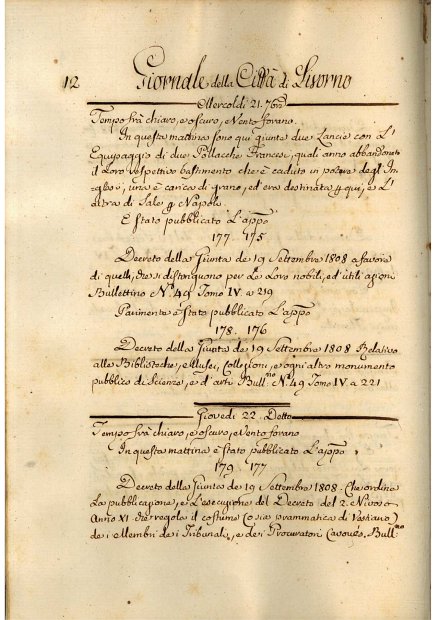 12 Giornale della Città di Livorno
Mercoldi 21. 7bre
Tempo frà chiaro, e oscuro, e Vento forano.
In questa mattina sono qui giunte due Lancie con L'
Equipaggio di due Polacche Francesi, quali anno abbandonato
il Loro respettivo bastimento che è caduto in potere degl' In-
glesi, una è carica di grano, ed era destinata p qui, e L'
altra di Sale p Napoli.
È stato pubblicato L'appo
177. 175
Decreto della Giunta de 19 Settembre 1808 a favore
di quelli, che si distinguono per Le Loro nobili, ed utili azioni
Bullettino No. 49 Tomo IV. a 219
Parimente è stato pubblicato L'appo
178. 176
Decreto della Giunta de 19 Settembre 1808 Relativo
alle Biblioteche, e Musei, Collezioni, e ogni altro monumento
pubblico di Scienze, e d'arti Bull.no No. 49 Tomo IV a 221
Giovedi 22. Detto
Tempo frà chiaro, e oscuro, e Vento forano
In questa mattina è stato pubblicato L'appo
179. 177
Decreto della Giunta de 19 Settembre 1808. Che ordina
La pubblicazione, e L'esecuzione del Decreto del 2. Nivoso
Anno XI. che regola il costume o sia prammatica di Vestiario
de i Membri de i Tribunali, e de i Procuratori Bull.no